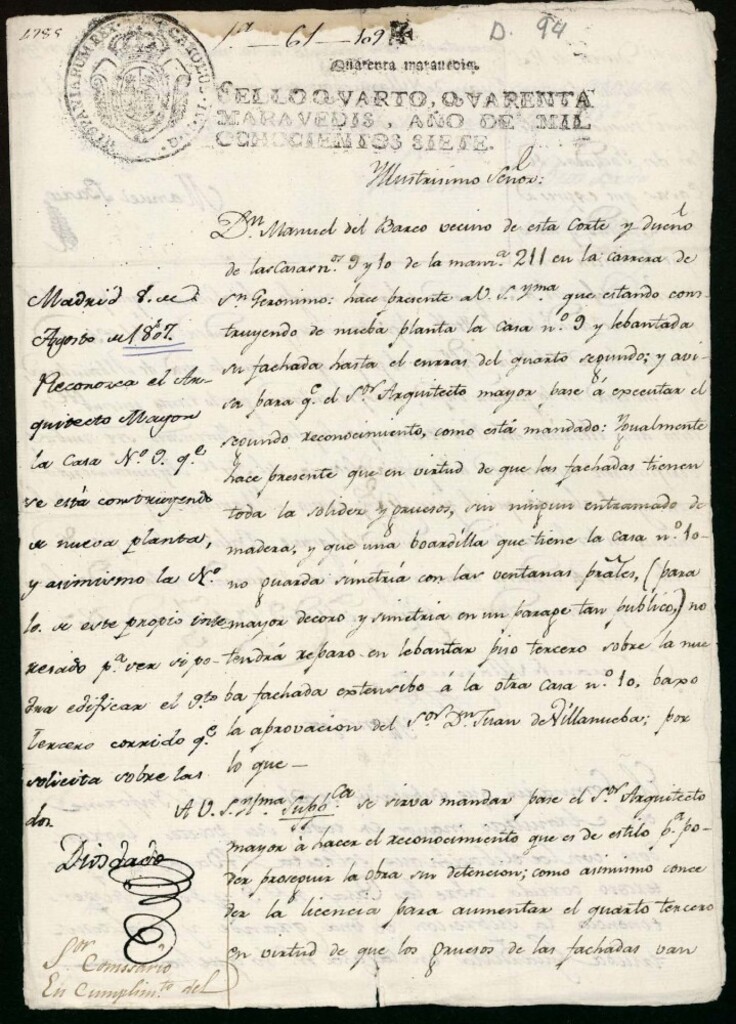 1788
1ª - 61 - 109
D. 94
HISPANIARUM REX CAROLUS IV D G
Quarenta maravedis.
SELLO QVARTO, QVARENTA
MARAVEDIS, AÑO DE MIL
OCHOCIENTOS SIETE.
Yllustrisimo Señor:
Dn. Manuel del Barco vecino de esta Corte y dueño
de las Casas nos. 9 y 10 de la manza. 211 en la carrera de
Sn. Geronimo: hace presente a V. S. Yma. que estando cons-
truyendo de nueba planta la Casa nº. 9 y lebantada
su fachada hasta el enrras del quarto segundo; y avi-
sa para qe. el Sor. Arquitecto mayor, pase á executar el
segundo reconocimiento, como está mandado: Ygualmente
hace presente que en virtud de que las fachadas tienen
toda la solidez y gruesos, sin ningun entramado de
madera, y que una boardilla que tiene la Casa nº. 10
no guarda simetría con las ventanas prales, (para
mayor decoro y simetria en un parage tan publico,) no
tendrá reparo en lebantar piso tercero sobre la nue-
ba fachada extensibo á la otra Casa nº. 10, baxo
la aprovacion del Sor. Dn. Juan de Villanueba; por
lo que
A V. S. Yma. Supca. se sirva mandar pase el Sor. Arquitecto
mayor á hacer el reconocimiento que es de estilo pª. po-
der proseguir la obra sin detencion; como asimismo conce
der la licencia para aumentar el quarto tercero
en virtud de que los gruesos de las fachadas van
Madrid 8. de
Agosto de 1807.
Reconozca el Ar-
quitecto Mayor
la Casa Nº 9. qe.
se está construyendo
de nueva planta,
y asimismo la Nº.
10. de este propio inte
resado pª. ver si po-
dra edificar el qto.
tercero corrido qe.
solicita sobre las
dos.
Diosdado
Sor. Comisario
En Cumplimto. del